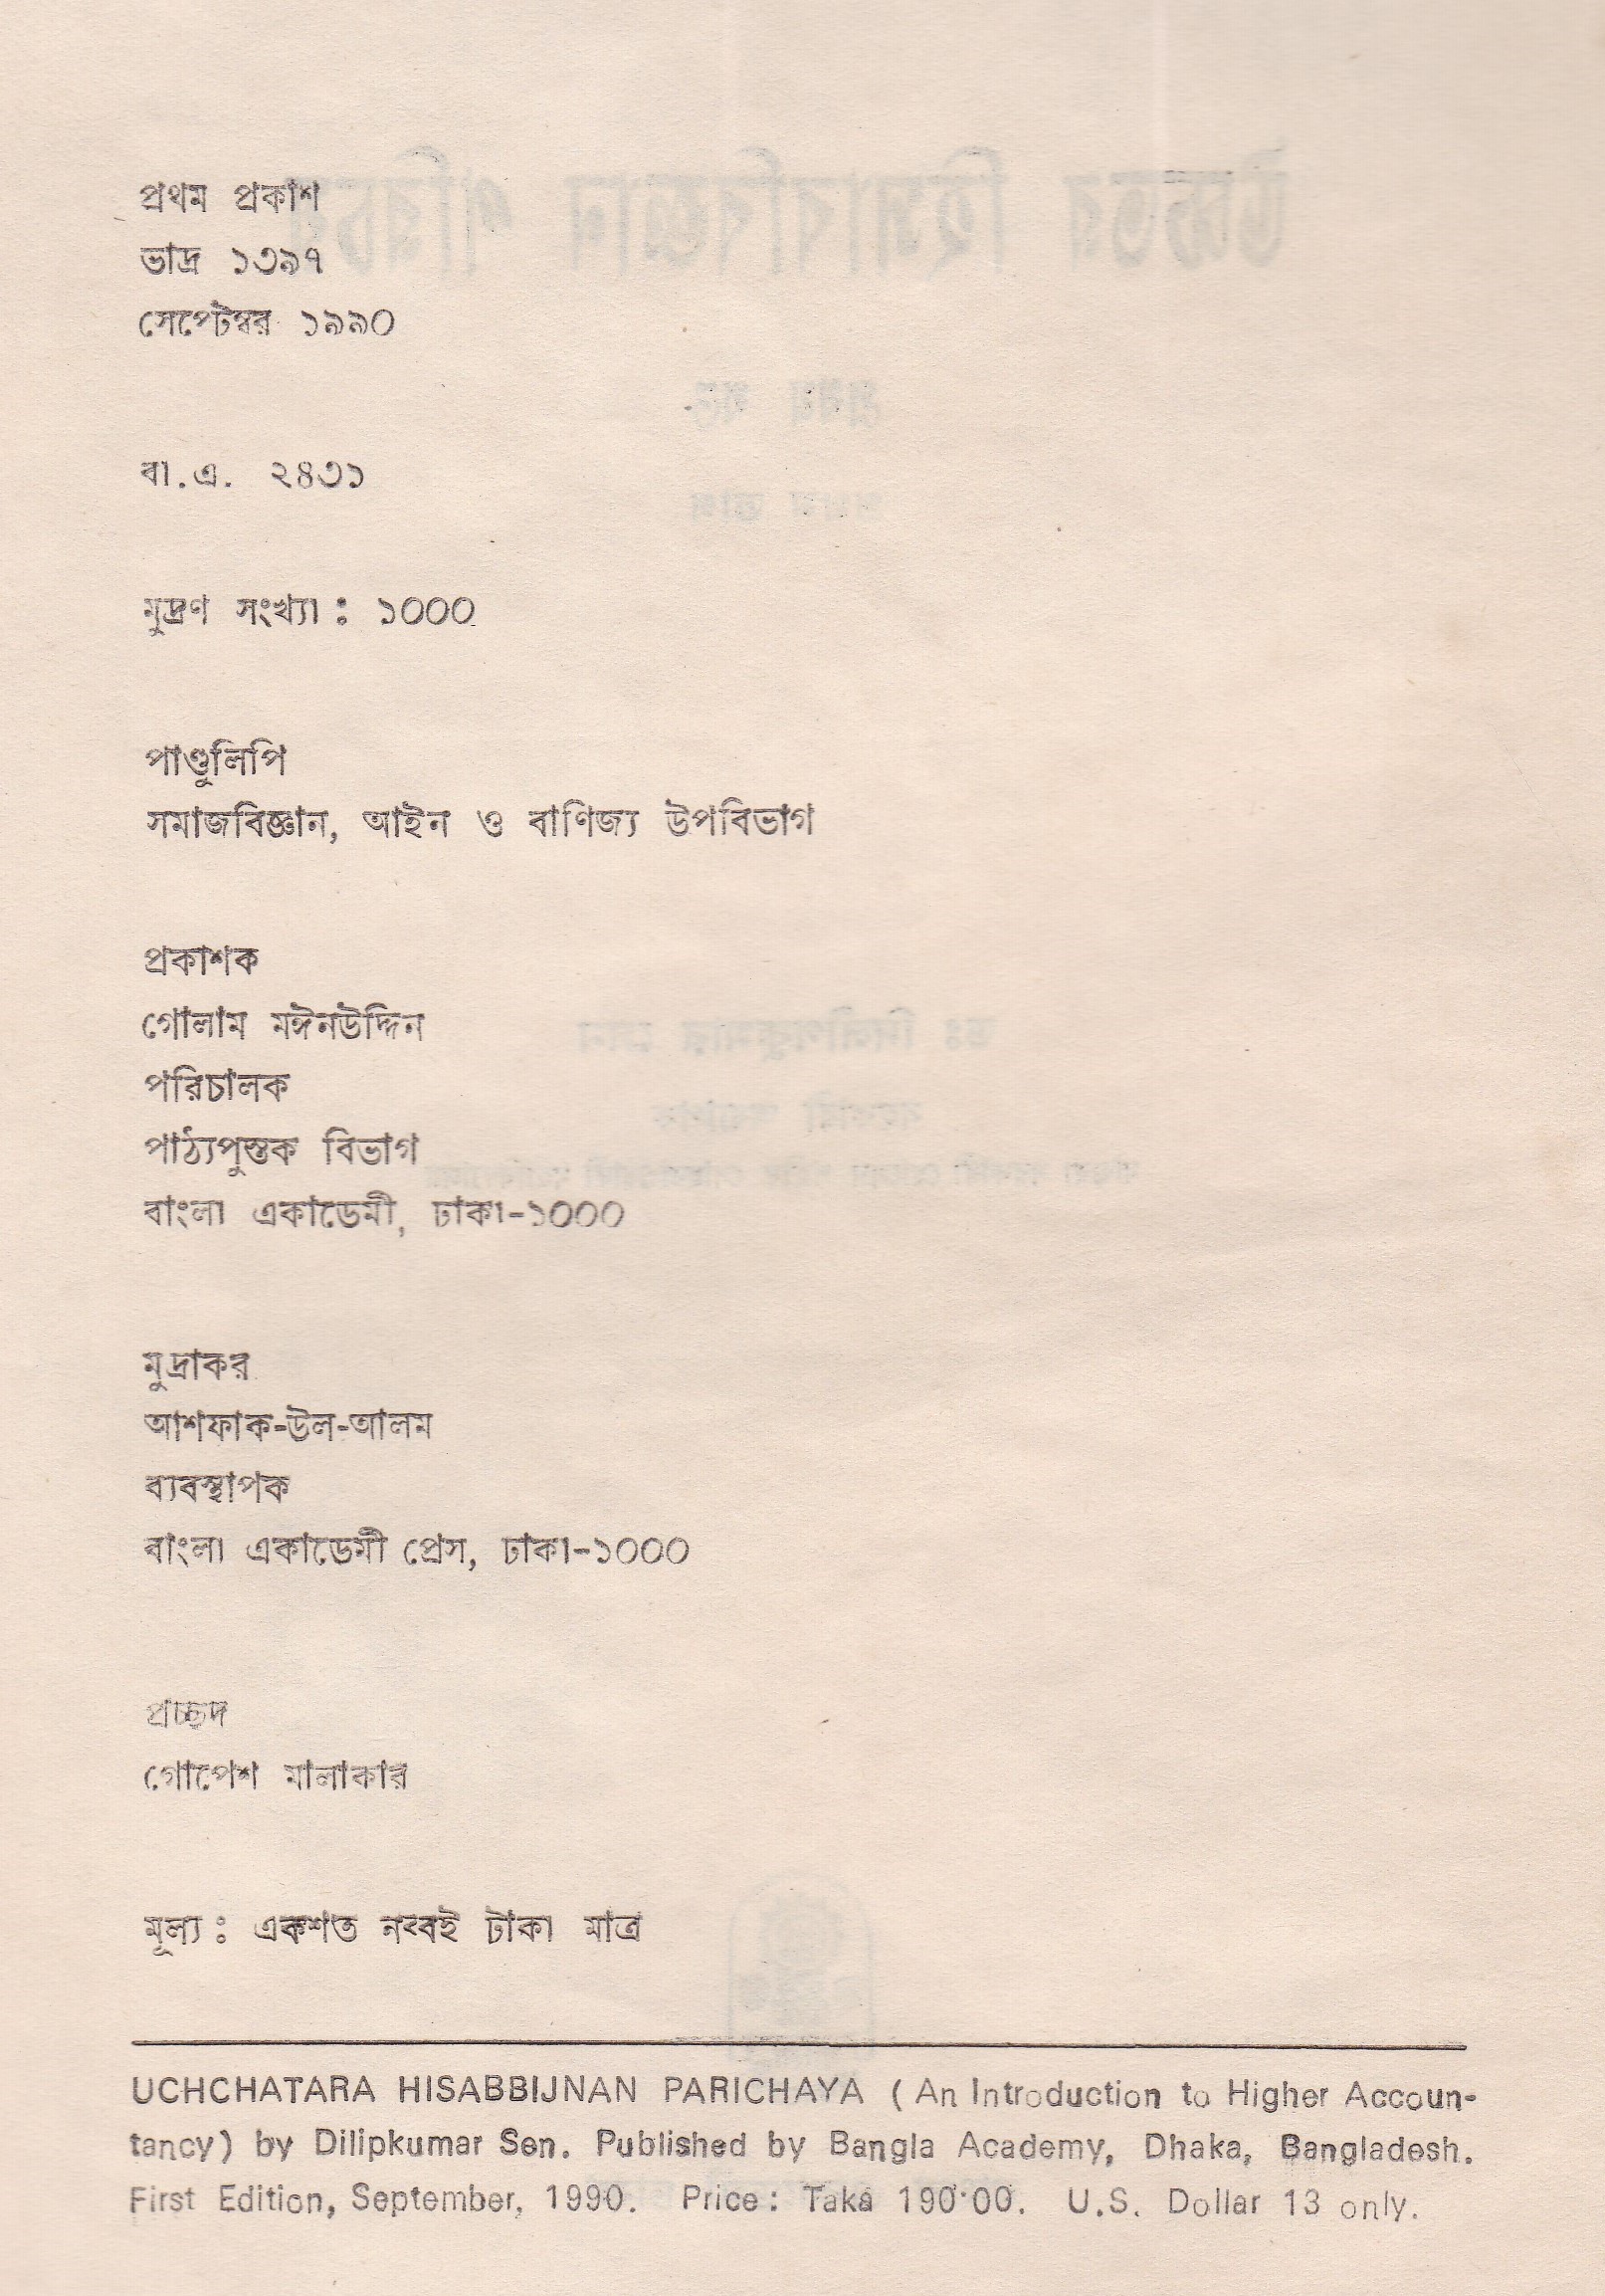 প্রথম প্রকাশ
ভাদ্র ১৩৯৭
সেপ্টেম্বর ১৯৯০
বা.এ. ২৪৩১
মুদ্রণ সংখ্যা : ১০০০
পাণ্ডুলিপি
সমাজবিজ্ঞান, আইন ও বাণিজ্য উপবিভাগ
প্রকাশক
গোলাম মঈনউদ্দিন
পরিচালক
পাঠ্যপুস্তক বিভাগ
বাংলা একাডেমী, ঢাকা-১০০০
মুদ্রাকর
আশফাক-উল-আলম
ব্যবস্থাপক
বাংলা একাডেমী প্রেস, ঢাকা-১০০০
প্রচ্ছদ
গোপেশ মালাকার
মূল্য : একশত নব্বই টাকা মাত্র
UCHCHATARA HISABBIJNAN PARICHAYA ( An Introduction to Higher Accoun-
tancy ) by Dilipkumar Sen. Published by Bangla Academy, Dhaka, Bangladesh.
First Edition, September, 1990. Price : Taka 190·00. U.S. Dollar 13 only.